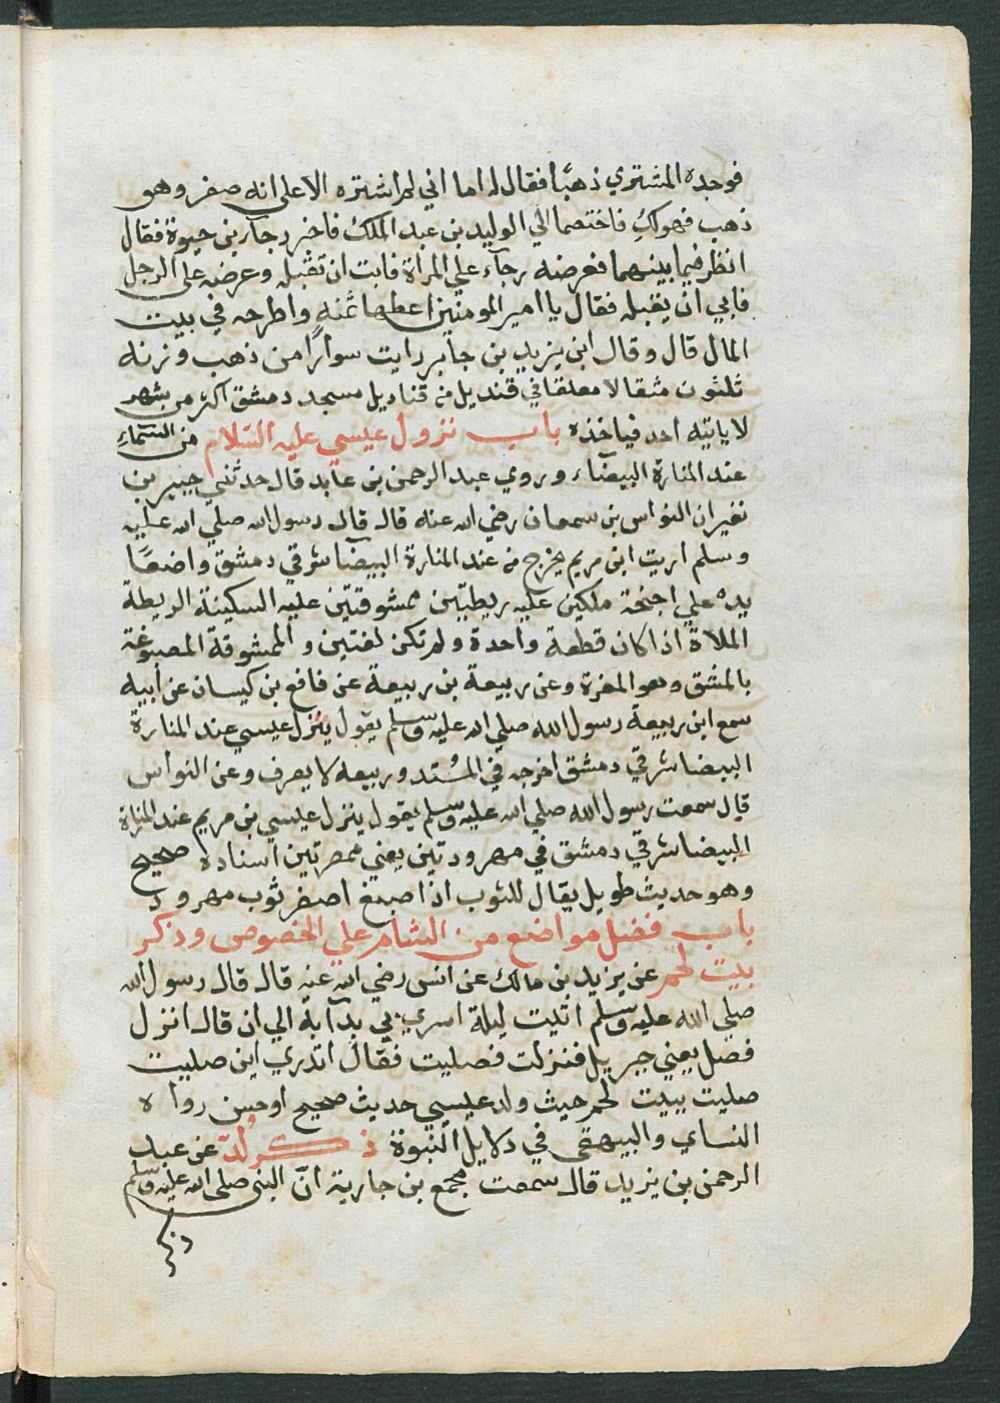 فوجده المشتري ذهبًا فقال له اما اني لم اشتره الا على انه صفر وهو
ذهب فهو لك فاختصما الي الوليد بن عبد الملك فاحضر رجاء بن حيوة فقال
انظر فيما بينهما فعرضه رجاء علي المراة فابت ان تقبله وعرضه علي الرجل
فابي ان يقبله فقال يا امير المومنين اعطها ثمنه واطرحه في بيت
المال قال وقال ابن يزيد بن جابر رايت سوارًا من ذهب وزنه
ثلثون مثقالا معلقا في قنديل من قناديل مسجد دمشق اكثر من شهر
لا ياتيه احد فياخذه باب نزول عيسي عليه السلام من السماء
عند المنارة البيضاء وروي عبد الرحمن بن عايد قال حدثني جبير بن
نفير ان النواس بن سمعان رضي الله عنه قال قال رسول الله صلي الله عليه
وسلم اريت ابن مريم يخرج من عند المنارة البيضا شرقي دمشق واضعًا
يده علي اجنحة ملكين عليه ريطتين ممشوقتين عليه السكينة الريطة
الملاة اذا كان قطعة واحدة ولم تكن لفتين والممشوقة المصبوغة
بالمشق وهو المغرة وعن ربيعة بن ربيعة عن فافع بن كيسان عن ابيه
سمع ابن ربيعة رسول الله صلي الله عليه وسلم يقول ينزل عيسي عند المنارة
البيضا شرقي دمشق اخرجه في المسند وربيعه لا يعرف وعن النواس
قال سمعت رسول الله صلي الله عليه وسلم يقول ينزل عيسي بن مريم عند المنارة
البيضا شرقي دمشق في مهرودتين يعني ممصرتين اسناده صحيح
وهو حديث طويل يقال للثوب اذا صبغ اصفر ثوب مهرود
باب فضل مواضع من الشام علي الخصوص وذكر
بيت لحم عن يزيد بن مالك عن انس رضي الله عنه قال قال رسول الله
صلي الله عليه وسلم اتيت ليلة اسري بي بدابة الي ان قال انزل
فصل يعني جبريل فنزلت فصليت فقال اتدري اين صليت
صليت ببيت لحم حيث ولد عيسي حديث صحيح او حسن رواه
النساي والبيهقي في دلايل النبوة ذكر لُدّ عن عبد
الرحمن بن يزيد قال سمعت مجمع بن جارية انّ النبي صلي الله عليه وسلم
ذكر